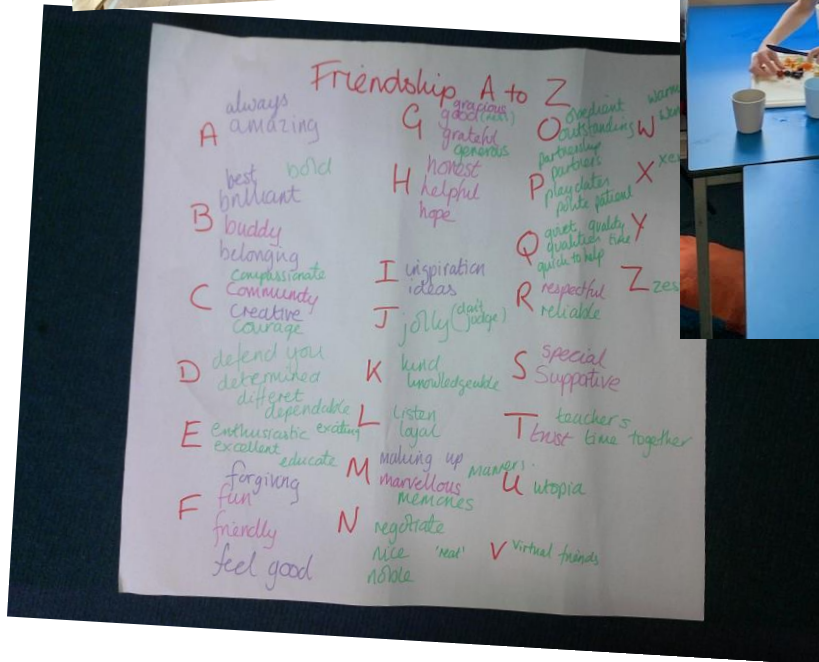 Friendship A to Z
A always
amazing
B best bold
brilliant
buddy
belonging
C compassionate
Community
Creative
Courage
D defend you
determined
differet
dependable
E enthusiastic exciting
excellent
educate
F forgiving
fun
friendly
feel good
G gracious
good
grateful
generous
H honest
helpful
hope
I inspiration
ideas
J jolly (don't judge)
K kind
knowledgeable
L listen
loyal
M making up manners
marvellous
memories
N negotiate
nice 'neat'
noble
O obedient
outstanding
P partnership
partners
playdates
polite patient
Q quiet quality
qualities time
quick to help
R respectful
reliable
S special
Supportive
T teachers
trust time together
U utopia
V Virtual friends
W
X
Y
Z